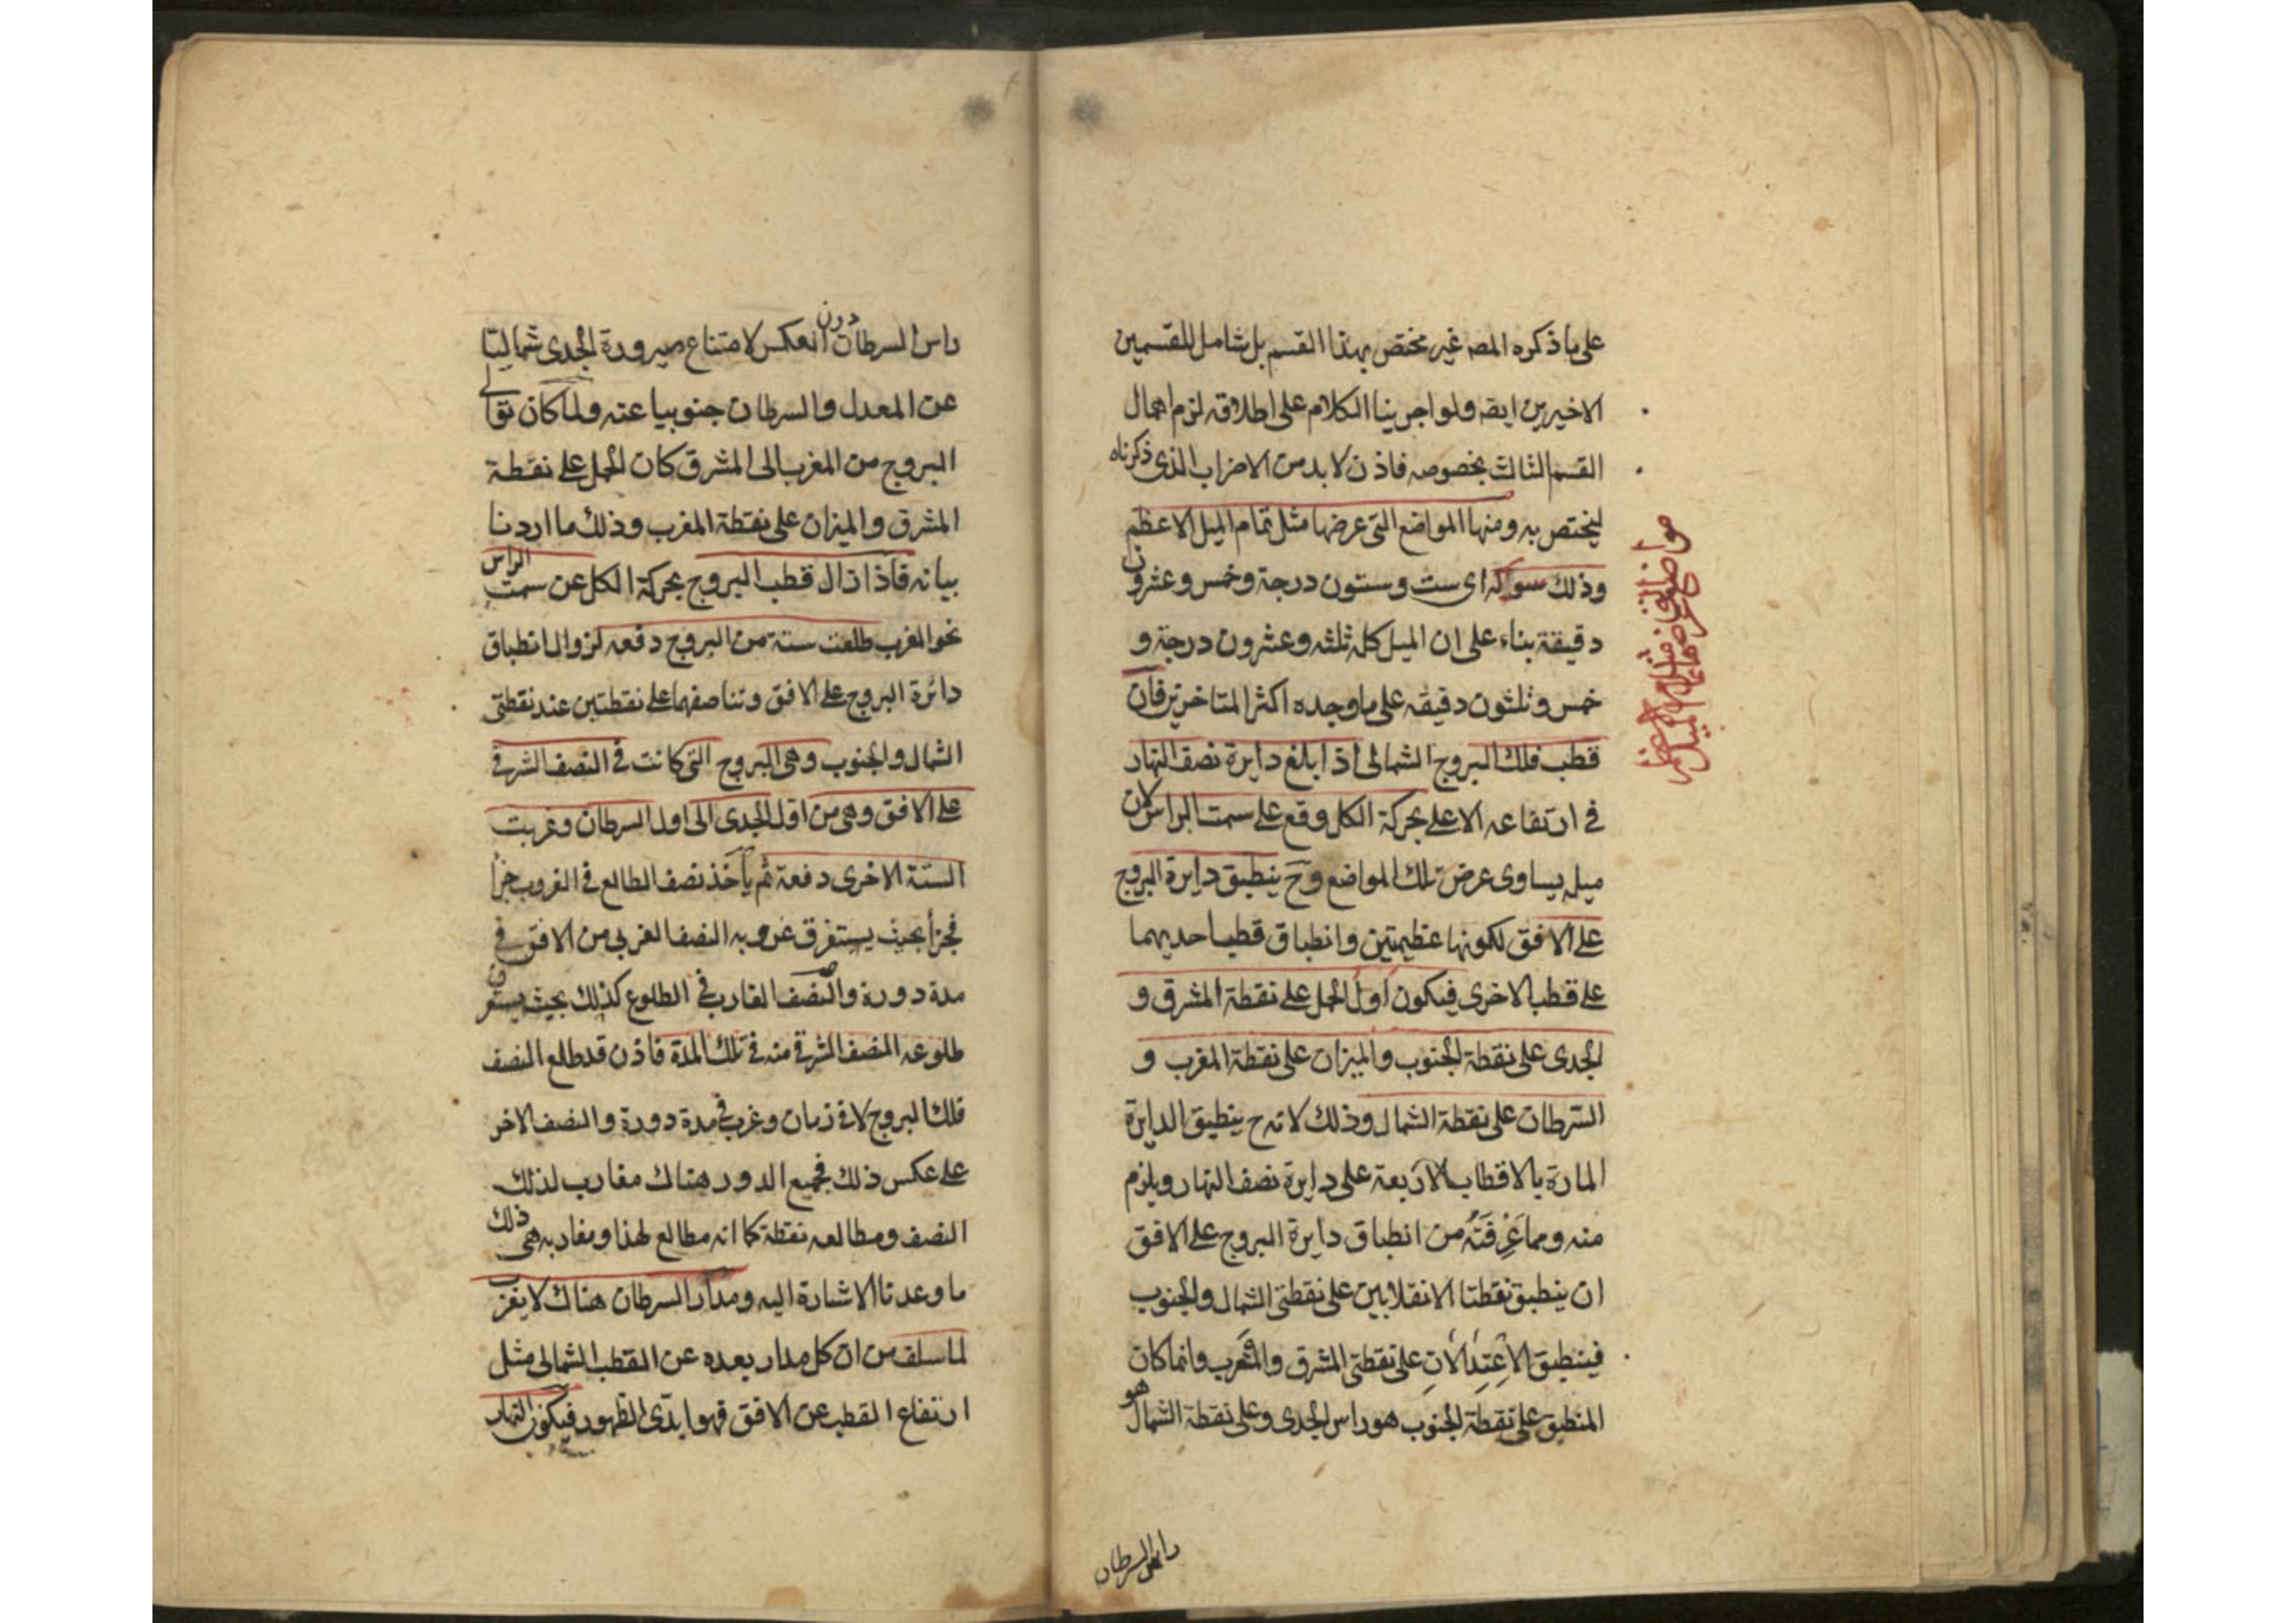 على ما ذكره المصه غير مختص بهذا القسم بل شامل للقسمين
الاخيرين ايضه ولو اجرينا الكلام على اطلاقه لزم اهمال
القسم الثالث بخصوصه فاذن لا بد من الاضراب الذى ذكرناه
ليختص به ومنها المواضع التى عرضها مثل تمام الميل الاعظم
وذلك سو كه اى ست وستون درجة وخمس وعشرون
دقيقة بناء على ان الميل كله ثلثه وعشرون درجة و
خمس وثلثون دقيقه على ما وجده اكثر المتاخرين فان
قطب فلك البروج الشمالى اذا بلغ دايرة نصف النهار
في ارتفاعه الاعلى بحركة الكل وقع على سمت الراس لان
ميله يساوى عرض تلك المواضع وح ينطبق دايرة البروج
على الافق لكونها عظيمتين وانطباق قطب احديهما
على قطب الاخرى فيكون اول الحمل على نقطة المشرق و
الجدى على نقطة الجنوب والميزان على نقطة المغرب و
السرطان على نقطة الشمال وذلك لانه ح ينطبق الدايرة
المارة بالاقطاب الاربعة على دايرة نصف النهار ويلزم
منه ومما عَرفتَه من انطباق دايرة البروج على الافق
ان ينطبق نقطتا الانقلابين على نقطتى الشمال والجنوب
فينطبق الاعتدالان على نقطتى المشرق والمغرب وانما كان
المنطبق على نقطة الجنوب هو راس الجدى وعلى نقطة الشمال هو
راس السرطان
مواضع التي عرضها مثل تمام الميل الاعظم
راس السرطان دون العكس لامتناع صيرورة الجدى شماليا
عن المعدل والسرطان جنوبيا عنه ولما كان توالى
البروج من المغرب الى المشرق كان الحمل على نقطة
المشرق والميزان على نقطة المغرب وذلك ما اردنا
بيانه فاذا زال قطب البروج بحركة الكل عن سمت الراس
نحو المغرب طلعت ستة من البروج دفعه لزوال انطباق
دائرة البروج على الافق وتناصفهما على نقطتين عند نقطتى
الشمال والجنوب وهى البروج التى كانت فى النصف الشرقى
على الافق وهى من اول الجدى الى اول السرطان وغربت
الستة الاخرى دفعة ثم يأخذ نصف الطالع فى الغروب جزأ
فجزأ بحيث يستغرق غروبه النصف الغربى من الافق فى
مدة دورة والنصف الغارب فى الطلوع كذلك بحيث يستغرق
طلوعه النصف الشرقى منه فى تلك المدة فاذن قد طلع النصف
فلك البروج لا فى زمان وغرب فى مدة دورة والنصف الاخر
على عكس ذلك فجميع الدور هناك مغارب لذلك
النصف ومطالعه نقطة كما انه مطالع لهذا ومغاربه هى ذلك
ما وعدنا الاشارة اليه ومدار السرطان هناك لا يغرب
لما سلف من ان كل مدار بعده عن القطب الشمالى مثل
ارتفاع القطب عن الافق فهو ابدى الظهور فيكون النهار